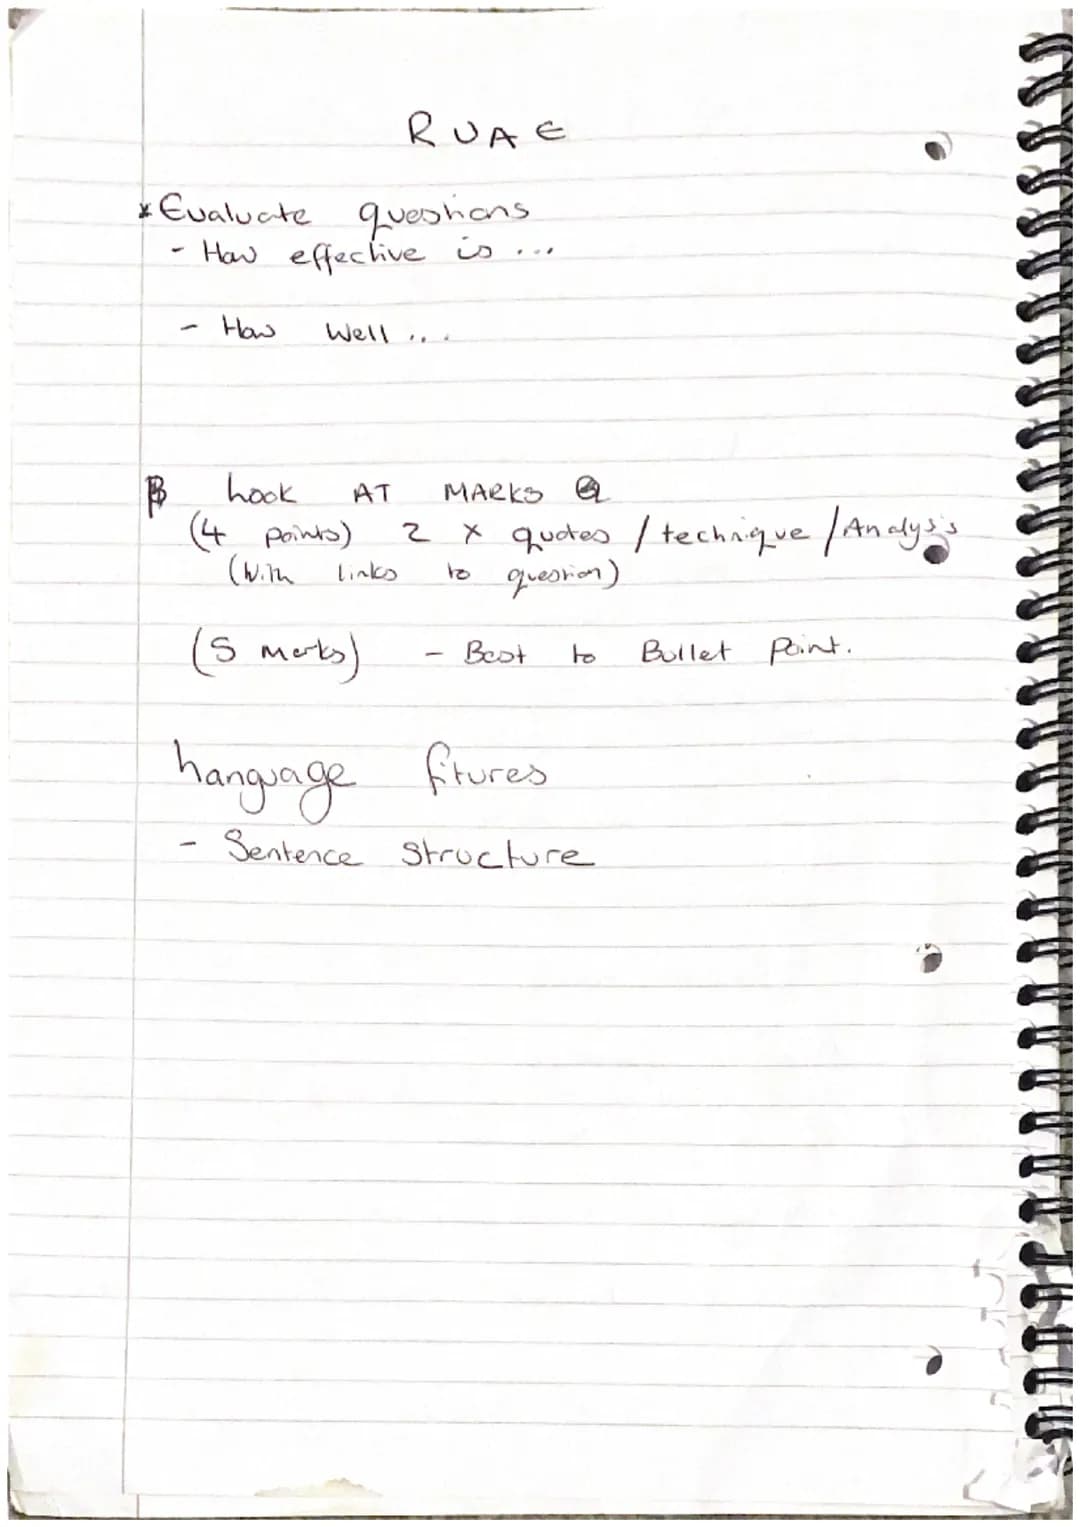 RUAE
* Evaluate questions
- How effective is ...
- How Well ...
Look AT MARKS
(4 points) 2 x quotes / technique / Analysis
(With links to question)
(5 marks) - Best to Bullet Point.
Language fitures
- Sentence Structure